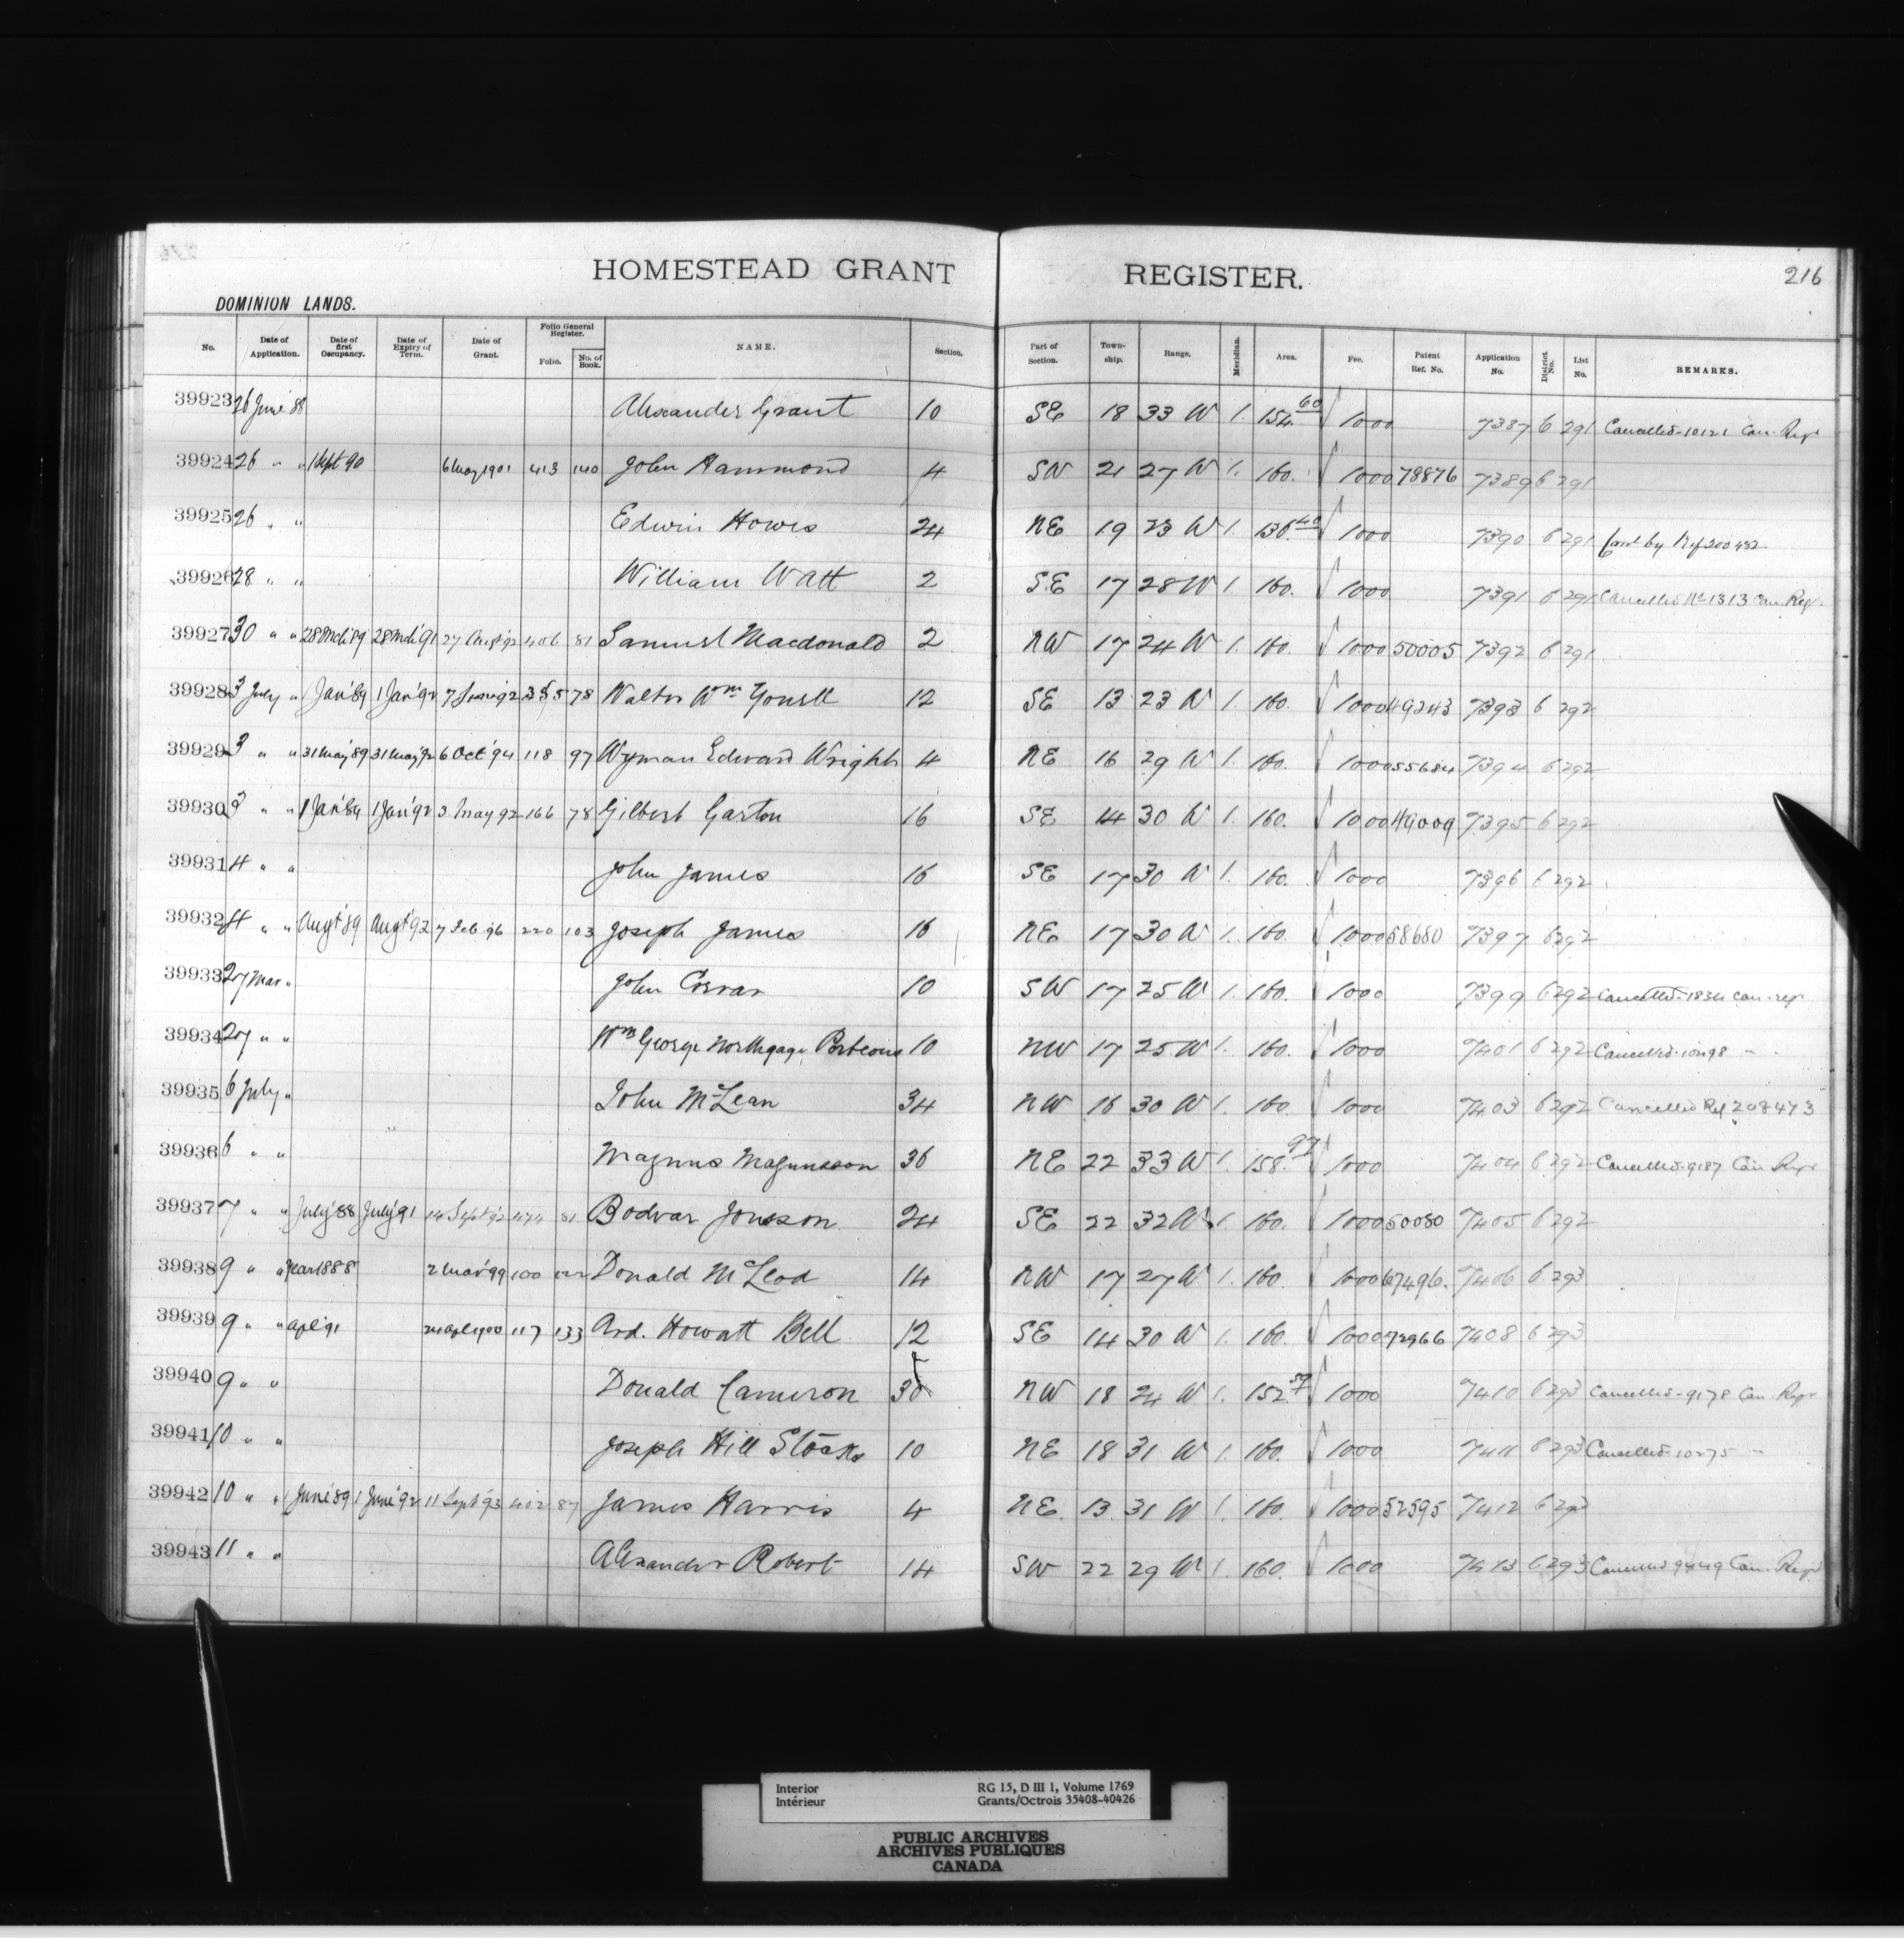 HOMESTEAD GRANT REGISTER. 216
DOMINION LANDS.
No. Date of Application. Date of first Occupancy. Date of Expiry of Term. Date of Grant. Folio General Register. Folio. No. of Book. NAME. Section. Part of Section. Township. Range. Meridian. Area. Fee. Patent Ref. No. Application No. District No. List No. REMARKS.
39923 26 June '88 Alexander Grant 10 SE 18 33 W 1. 154.60 1000 7387 6 291 Cancelled 10121 Can. Regr
39924 26 " " 1 Sept 90 6 May 1901 413 140 John Hammond 4 SW 21 27 W 1. 160. 1000 78876 7389 6 291
39925 26 " " Edwin Howes 24 NE 19 23 W 1. 136.40 1000 7390 6 291 Canc by Ref 200432
39926 28 " " William Watt 2 SE 17 28 W 1. 160. 1000 7391 6 291 Cancelled No 1313 Can. Regr.
39927 30 " " 28 Mch '89 28 Mch '91 27 Aug '92 406 81 Samuel Macdonald 2 NW 17 24 W 1. 160. 1000 50005 7392 6 291
39928 3 July " 1 Jan '89 1 Jan '92 7 June '92 355 78 Walter Wm Yonell 12 SE 13 23 W 1. 160. 1000 49243 7393 6 292
39929 3 " " 31 May '89 31 May '92 6 Oct '94 118 97 Wyman Edward Wright 4 NE 16 29 W 1. 160. 1000 55684 7394 6 292
39930 3 " " 1 Jan '89 1 Jan '92 3 May 92 166 78 Gilbert Garton 16 SE 14 30 W 1. 160. 1000 49009 7395 6 292
39931 4 " " John James 16 SE 17 30 W 1. 160. 1000 7396 6 292
39932 4 " " Augt '89 Augt '92 7 Feb. 96 220 103 Joseph James 16 NE 17 30 W 1. 160. 1000 58680 7397 6 292
39933 27 Mar " John 10 SW 17 25 W 1. 160. 1000 7399 6 292 Cancelled 1834 Can. regr
39934 27 " " Wm George Northgage Porteous 10 NW 17 25 W 1. 160. 1000 7401 6 292 Cancelled " "
39935 6 July " John McLean 34 NW 16 30 W 1. 160. 1000 7403 6 292 Cancelled Ref 208473
39936 6 " " Magnus Magnusson 36 NE 22 33 W 1. 158.97 1000 7404 6 292 Cancelled 9187 Can Regr
39937 7 " " July '88 July '91 14 Sept '92 474 81 Bodvar Jonsson 24 SE 22 32 W 1. 160. 1000 50080 7405 6 292
39938 9 " " Year 1888 2 Mar '99 100 122 Donald McLeod 14 NW 17 27 W 1. 160. 1000 67496. 7406 6 293
39939 9 " " Apl '91 24 Apl 1900 117 133 Ard. Howatt Bell 12 SE 14 30 W 1. 160. 1000 72966 7408 6 293
39940 9 " " Donald Cameron 30 NW 18 24 W 1. 152. 1000 7410 6 293 Cancelled 9178 Can Regr
39941 10 " " Joseph Hill Stocks 10 NE 18 31 W 1. 160. 1000 7411 6 293 Cancelled 10275 "
39942 10 " " 1 June '89 1 June '92 11 Sept '93 402 87 James Harris 4 NE 13 31 W 1. 160. 1000 52595 7412 6 293
39943 11 " " Alexander Robert 14 SW 22 29 W 1. 160. 1000 7413 6 293 Cancelled 9449 Can. Regr
Interior RG 15, D III 1, Volume 1769
Intérieur Grants/Octrois 35408-40426
PUBLIC ARCHIVES
ARCHIVES PUBLIQUES
CANADA